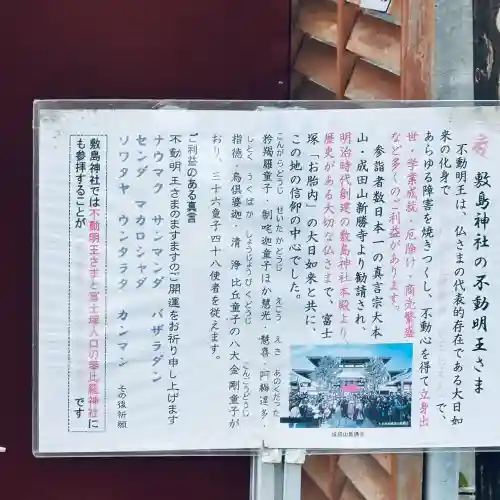 敷島神社の不動明王さま
不動明王は、仏さまの代表的存在である大日如
来の化身で
あらゆる障害を焼きつくし、不動心を得て立身出
世・学業成就・厄除け・商売繁盛
など多くのご利益があります。
参詣者数日本一の真言宗大本
山・成田山新勝寺より勧請され、
明治時代創建の敷島神社本殿より、
歴史がある大切な仏さまで、富士
塚「お胎内」の大日如来と共に、
この地の信仰の中心でした。
こんがらどうじ せいたかどうじ えこう えき あのくだった
矜羯羅童子・制吒迦童子ほか慧光・慧喜・阿耨達多・
しとく うぐばか しょうじょうびくどうじ こんごうどうじ
指徳・烏倶婆迦・清浄比丘童子の八大金剛童子が
おり、三十六童子四十八使者を従えます。
ご利益のある真言
不動明王さまのますますのご開運をお祈り申し上げます
ナウマク サンマンダ バザラダン
センダ マカロシャダ
ソワタヤ ウンタラタ カンマン その後祈願
敷島神社では不動明王さまと富士塚入口の
も参拝することが
です
成田山新勝寺